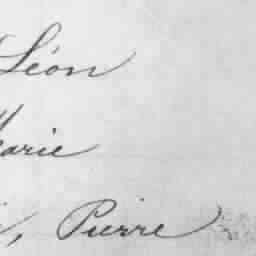 Léon
Marie
, Pierre